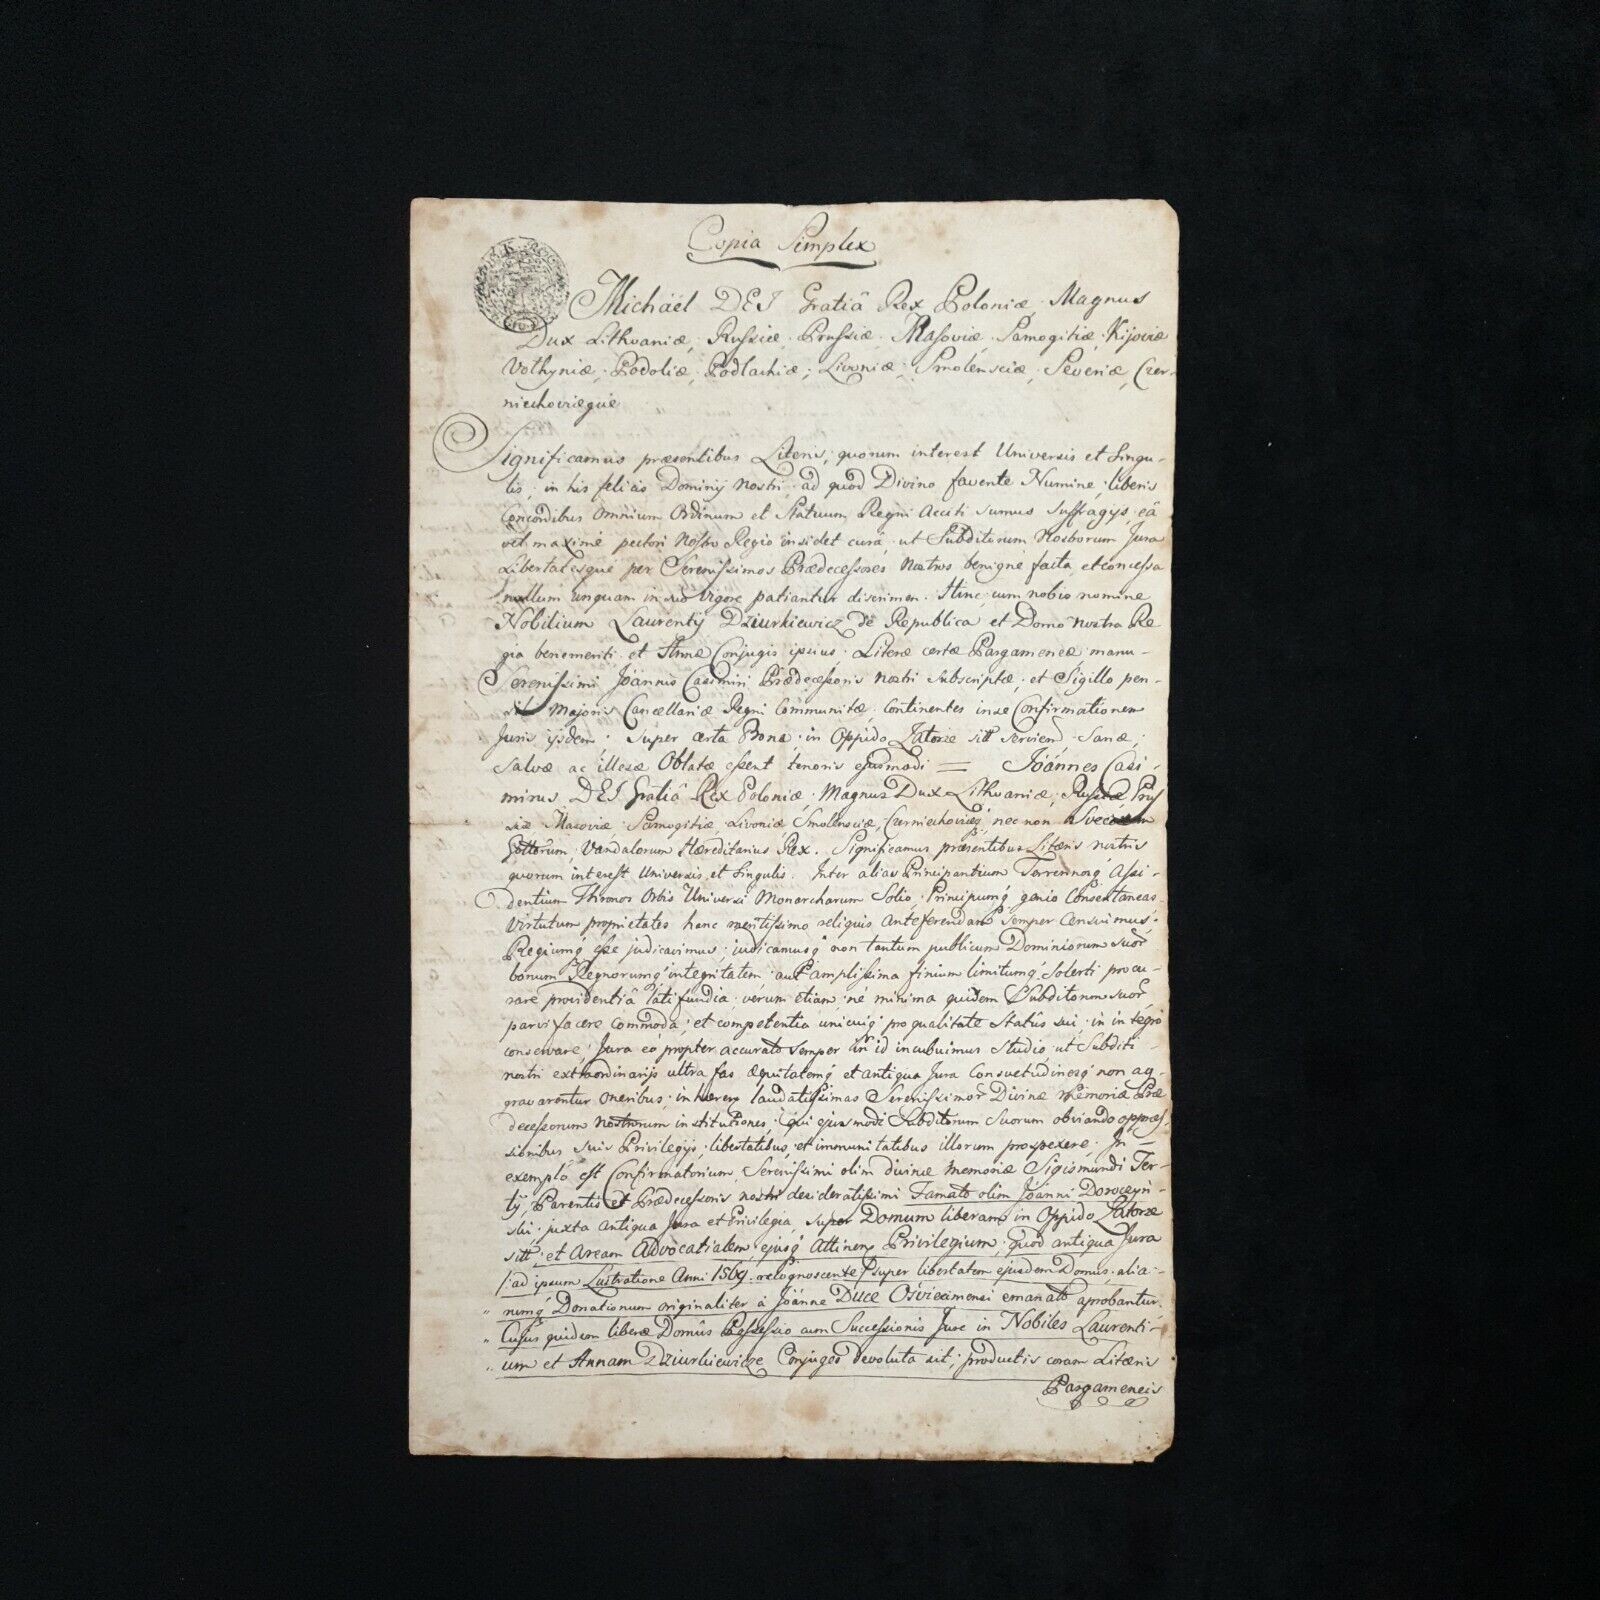 Copia Simplex
Michäel DEI Gratiâ Rex Poloniæ, Magnus
Dux Lithvaniæ, Russiæ, Prussiæ, Masoviæ, Samogitiæ, Kijoviæ
Volhyniæ, Podoliæ, Podlachiæ, Livoniæ, Smolensciæ, Severiæ, Czer-
niechoviæque
Significamus præsentibus Literis, quorum interest Universis et Singu-
lis, in his felicis Dominij Nostri, ad quod Divino favente Numine, liberis
Concordibus Omnium Ordinum et Statuum Regni Acciti sumus Suffragys, eâ
vel maximè pectori Nostro Regio insidet cura, ut Subditorum Nostrorum Jura
Libertatesque per Serenissimos Prædecessores Nostros benigne facta, et concessa
nullum unquam in suo vigore patiantur discrimen. Hinc, cum nobis nomine
Nobilium Laurentij Dziurkiewicz de Republica et Domo Nostra Re
gia benemeriti et Annæ Conjugis ipsius Literæ certæ Pargameneæ manu-
Serenissimi Joännis Casimiri Prædecessoris Nostri subscriptæ, et Sigillo pen-
sili Majoris Cancellariæ Regni Communitæ, Continentes in se Confirmationem
Juris ijsdem, super certa Bona, in Oppido Zatoriæ sitt Servien Sanæ,
Salvæ ac illesæ Oblatæ essent tenoris ejusmodi = Joännes Casi-
mirus DEI Gratiâ Rex Poloniæ, Magnus Dux Lithvaniæ, Russiæ Prus
siæ, Masoviæ, Samogitiæ, Livoniæ, Smolensciæ, Czerniechoviæq, nec non Svecorum
Gottorum, Vandalorum Hæreditarius Rex. Significamus præsentibus Literis nostris
quorum interest Universis et Singulis. Inter alias Principantium Terrennorq Assi-
dentium Thronos Orbis Universi Monarcharum Solio, Principumq genio Consentaneas
Virtutum proprietates hanc meritissimo reliquis anteferendam semper Censuimus,
Regiumq esse judicavimus, judicamusq non tantum publicum Dominiorum suor
bonum Regnorumq integritatem aut amplissima finium limitumq Solerti procu-
rare providentiâ latifundia, verum etiam ne minima quidem Subditorum suor
parvi facere Commoda, et competentia unicuiq pro qualitate Statûs sui, in integro
conservare, Jura eo propter accurato semper in id incubuimus Studio, ut Subditi-
nostri extraordinarijs ultra fas æquitatemq et antiqua Jura Consvetudinesq non ag-
gravarentur Oneribus, inhæren laudatissimas Serenissimor Divinæ Memoriæ Præ
decessorum Nostrorum institutiones, qui ejusmodi Subditorum Suorum obviando oppres-
sionibus suis Privilegys, libertatibus, et immunitatibus illorum prospexere. In-
exemplo est Confirmatorium Serenissimi olim divinæ Memoriæ Sigismundi Ter-
tij, Parentis et Prædecessoris nostri desideratissimi Famato olim Joänni Doroczyń-
ski, juxta antiqua Jura et Privilegia super Domum liberam in Oppido Zatoriæ
sitt, et Aream Advocatialem, ejusq Attinen Privilegium, quod antiqua Jura
/: ad ipsum Lustratione Anni 1569 recognoscente :/ super libertatem ejusdem Domus, alia-
" rumq Donationum originaliter à Joänne Duce Osvieximensi emanato aprobantur.
" Cujus quidem liberæ Domûs Possessio cum Successionis Jure in Nobiles Laurenti-
" um et Annam Dziurkiewicze Conjuges devoluta sit, productis coram Literis
Pargameneis